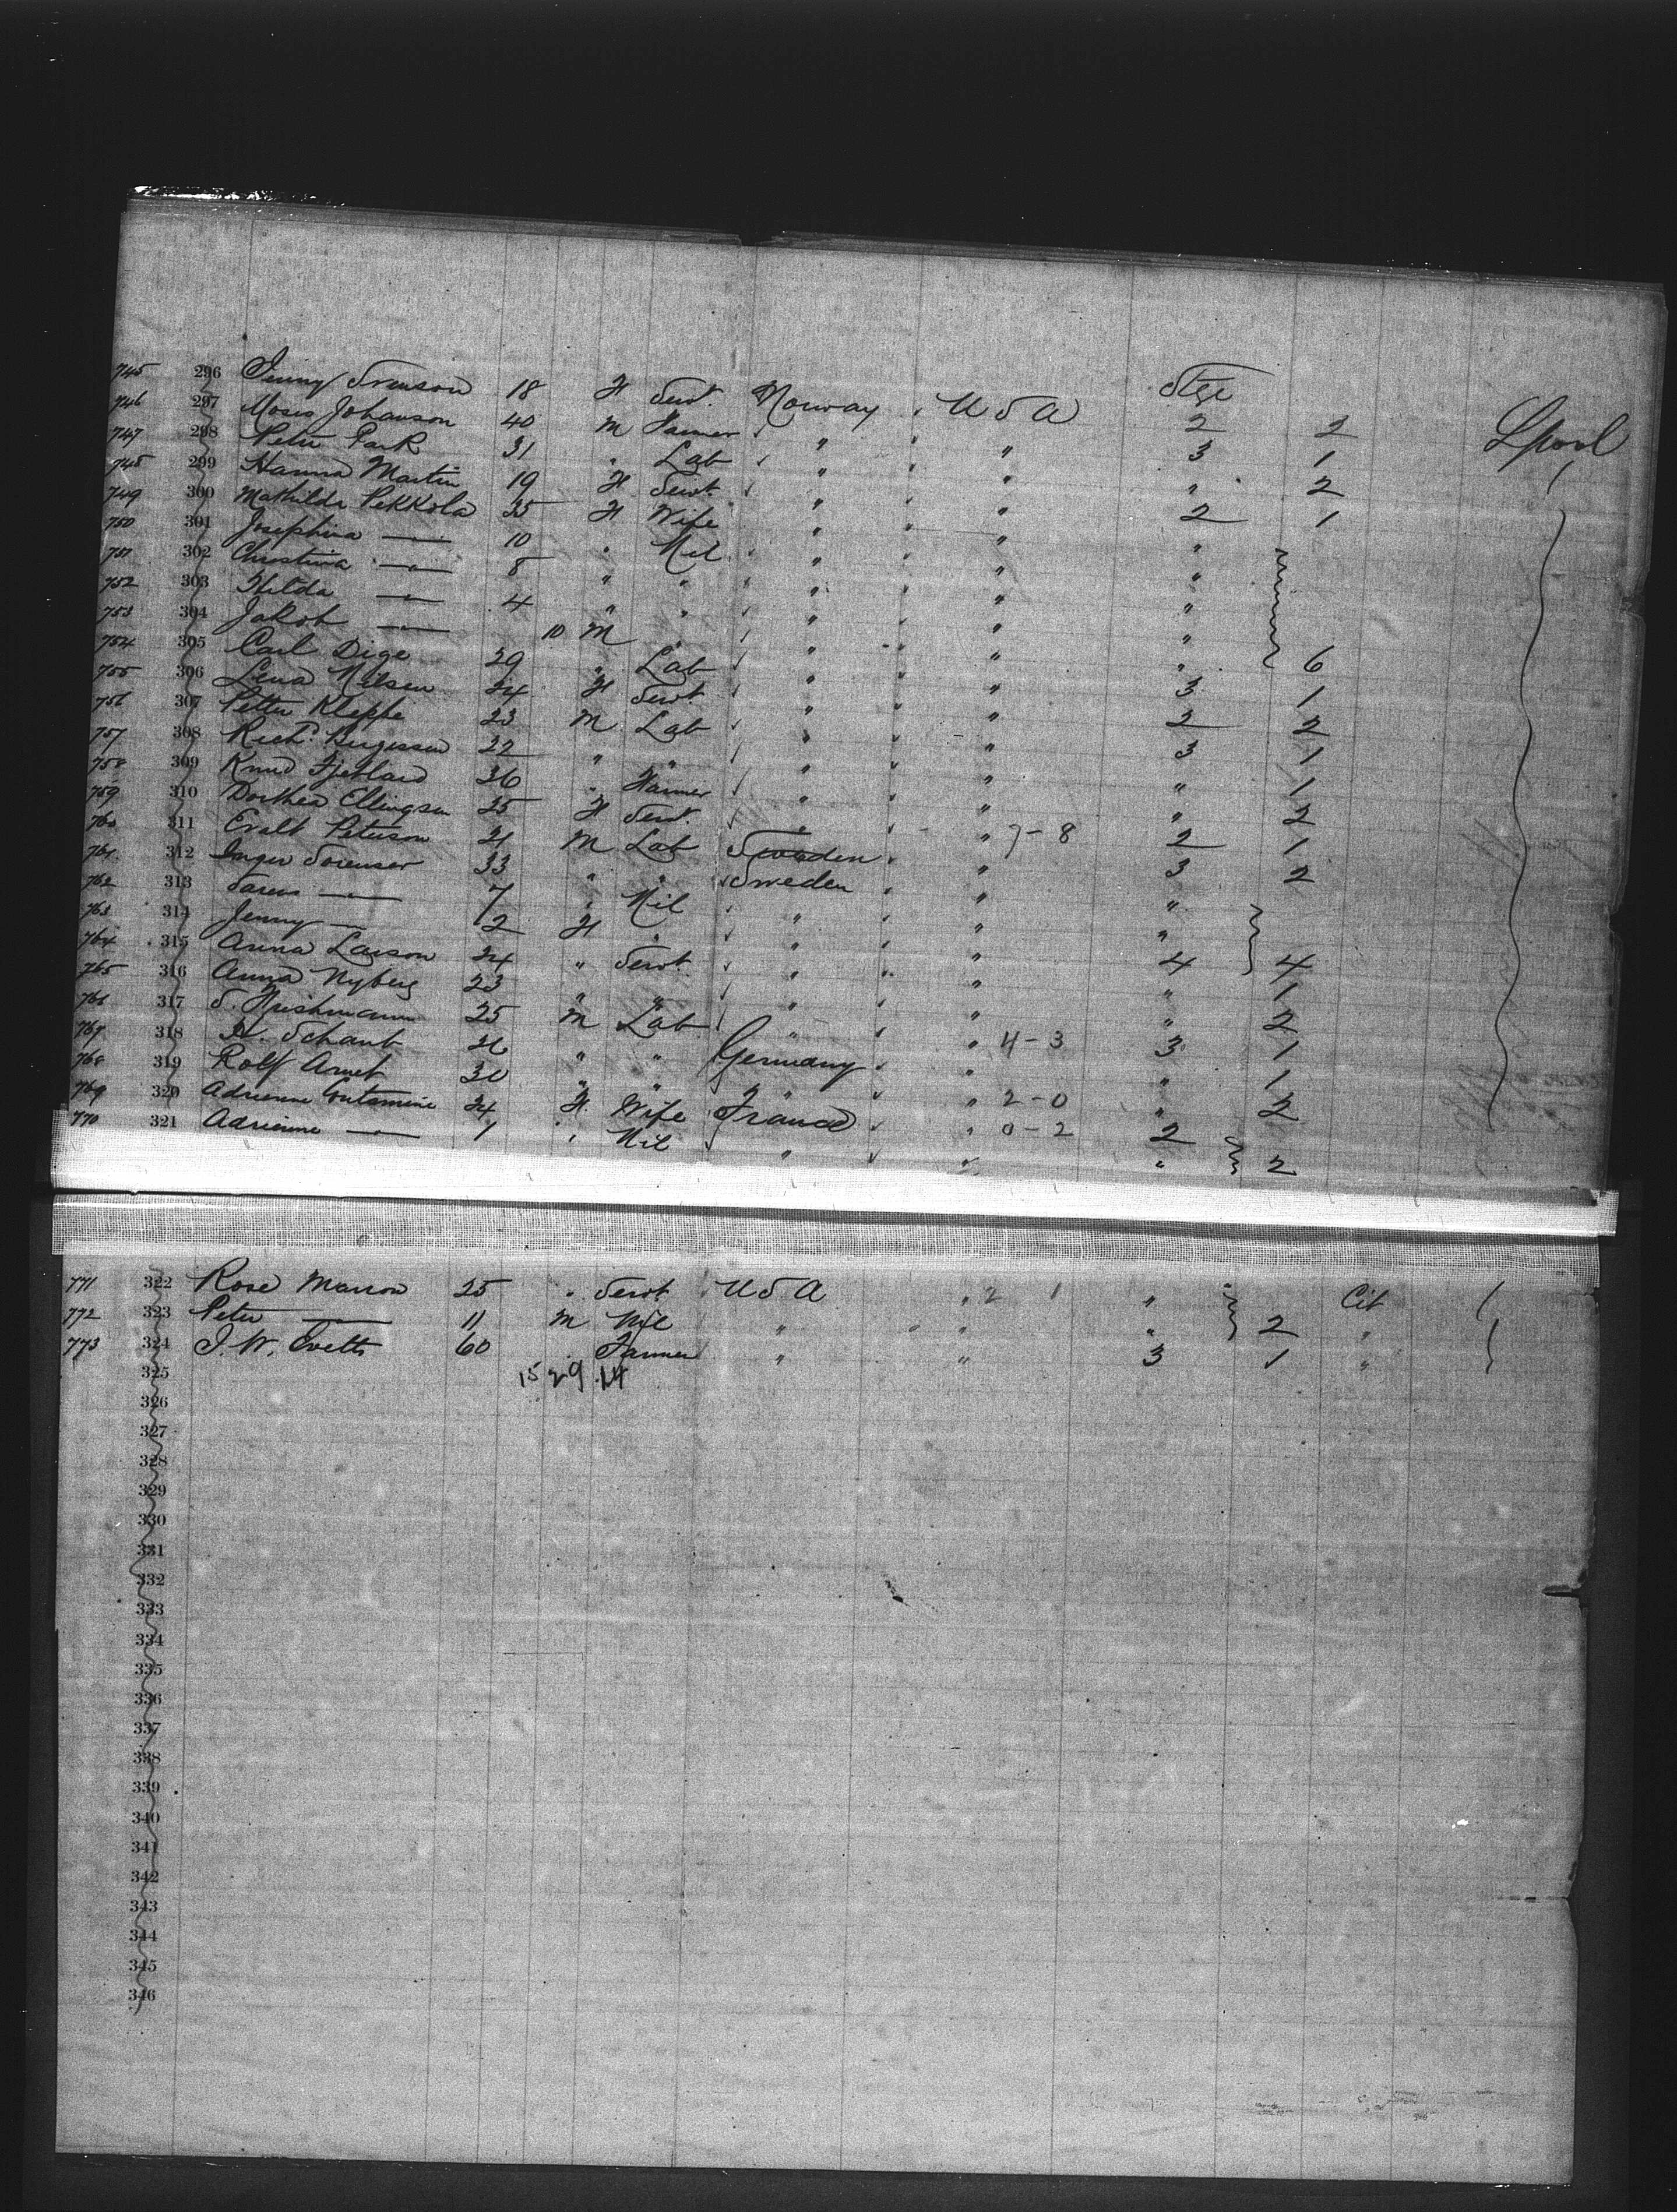 745 296 Jenny Svenson 18 F Servt. Norway " U S A Stge
746 297 Moses Johanson 40 M Farmer " " 2 2
747 298 Peter Park 31 " Lab " " 3 1
748 299 Hanna Martin 19 F Servt. " " " 2
749 300 Mathilda Pekkola 35 F Wife " " 2 1 Lpool
750 301 Josephina — " — 10 " Nil " " "
751 302 Christina — " — 8 " " " " "
752 303 Hilda — " — 4 " " " " "
753 304 Jakob — " — 10 M " " " "
754 305 Carl Dige 29 " Lab " " " 6
755 306 Lena Nilsen 24 F Servt. " " 3 1
756 307 Petter Kleppe 23 M Lab " " 2 2
757 308 Richd. Birgesson 22 " " " " 3 1
758 309 Knud Fjetland 36 " Farmer " " " 1
759 310 Dorthea Ellingsen 25 F Servt. " " " 2
760 311 Evalt Peterson 21 M Lab Sweden " 7-8 2 1
761 312 Inger Sorenser 33 " " Sweden " 3 2
762 313 Soren — " — 7 " Nil " " "
763 314 Jenny — 2 F " " " "
764 315 Anna Larson 24 " Servt. " " 4 4
765 316 Anna Nyberg 23 " " " " " 1
766 317 S. 25 M Lab " " " 2
767 318 H. Schaub 26 " " Germany " 4-3 3 1
768 319 Rolf Arnet 30 " " " " " 1
769 320 Adrienne Contamine 24 F Wife France " 2-0 " 2
770 321 Adrienne — " — 1 " Nil " " 0-2 2
" 2
771 322 Rose Marron 25 " Servt. U S A " 2 1 " Cit
772 323 Peter — 11 M Nil " " " 2 "
773 324 J. W. Evetts 60 " Farmer " " 3 1 "
325 15 29 14
326
327
328
329
330
331
332
333
334
335
336
337
338
339
340
341
342
343
344
345
346